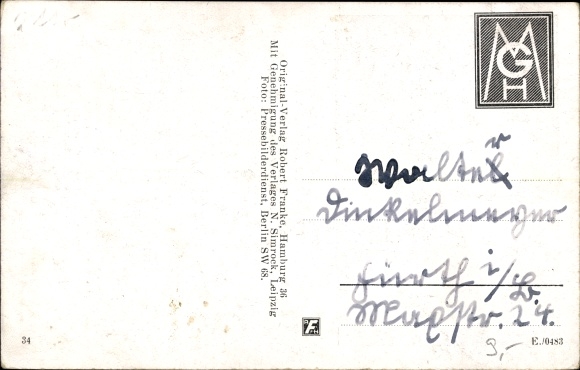 MGH
Original-Verlag Robert Franke, Hamburg 36
Mit Genehmigung des Verlages N. Simrock, Leipzig
Foto: Pressebilderdienst, Berlin SW 68.
Walter
Dinkelmeyer
Fürth i/B.
Maxstr. 24.
F
34
9,-
E./0483